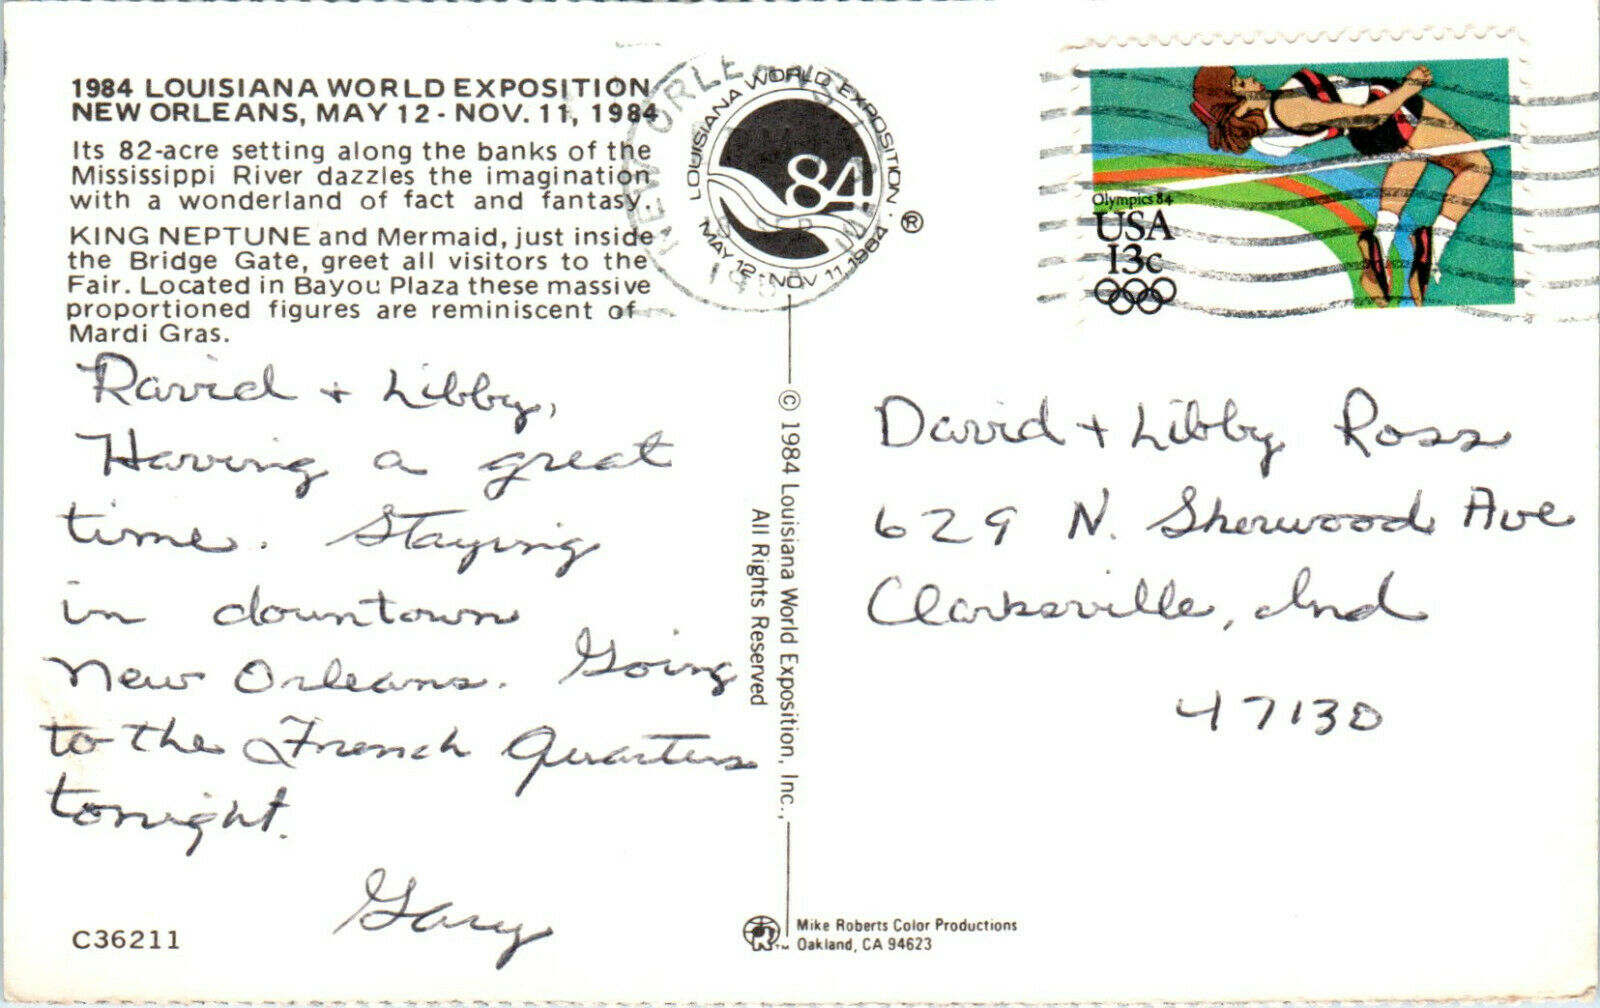 1984 LOUISIANA WORLD EXPOSITION
NEW ORLEANS, MAY 12 - NOV. 11, 1984
Its 82-acre setting along the banks of the
Mississippi River dazzles the imagination
with a wonderland of fact and fantasy.
KING NEPTUNE and Mermaid, just inside
the Bridge Gate, greet all visitors to the
Fair. Located in Bayou Plaza these massive
proportioned figures are reminiscent of
Mardi Gras.
David + Libby,
Having a great
time. Staying
in downtown
New Orleans. Going
to the French Quarters
tonight.
Gary
C36211
LOUISIANA WORLD EXPOSITION
84
MAY 12 - NOV 11, 1984
®
NEW ORLEANS
SEP
© 1984 Louisiana World Exposition, Inc.,
All Rights Reserved
Mike Roberts Color Productions
Oakland, CA 94623
TM
Olympics 84
USA
13c
David + Libby Ross
629 N. Sherwood Ave
Clarksville, Ind
47130